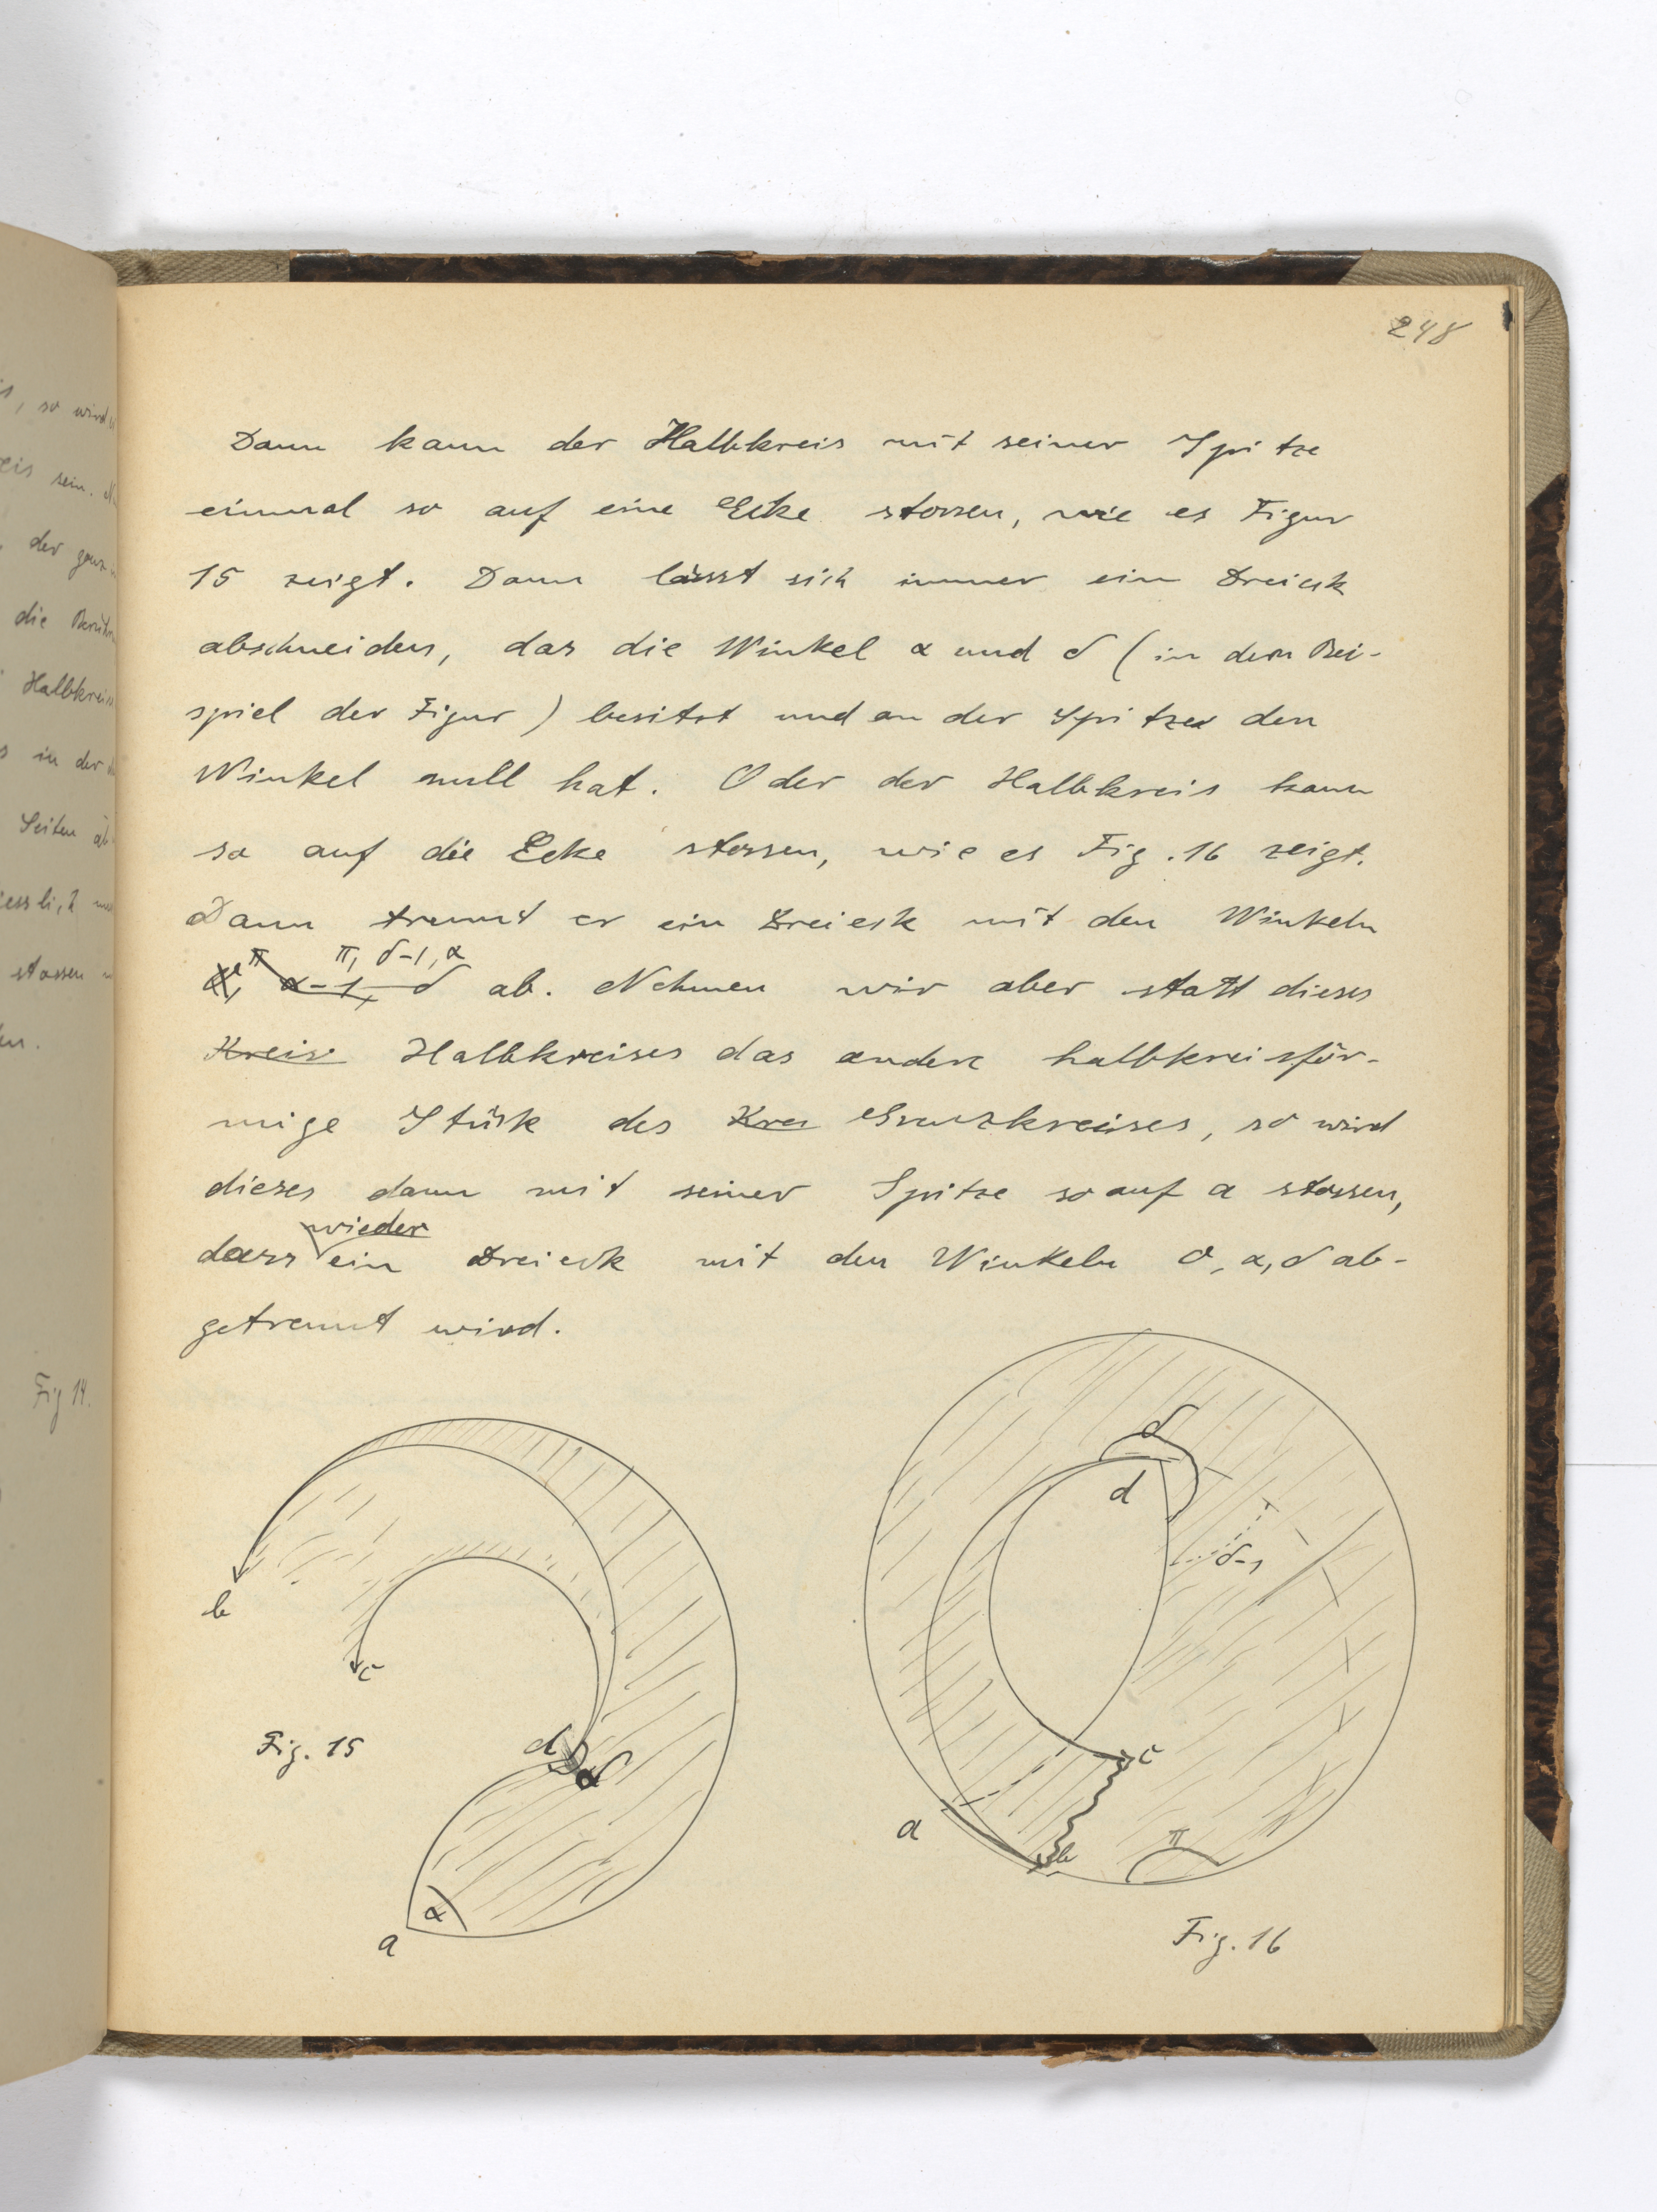 248
Dann kann der Halbkreis mit seiner Spitze
einmal so auf eine Ecke stossen, wie es Figur
15 zeigt. Dann lässt sich immer ein Dreieck
abschneiden, das die Winkel α und δ (in dem Bei-
spiel der Figur) besitzt und an der Spitze den
Winkel null hat. Oder der Halbkreis kann
so auf die Ecke stossen, wie es Fig. 16 zeigt.
Dann trennt er ein Dreieck mit den Winkeln
π, δ-1, α
α-1, δ ab. Nehmen wir aber statt dieses
Kreis Halbkreises das andere halbkreisför-
mige Stück des Kre Grenzkreises, so wird
dieses dann mit seiner Spitze so auf a stossen,
wieder
dass ein Dreieck mit den Winkeln 0, α, δ ab-
getrennt wird.
δ
d
δ-1
b
c
Fig. 15
d
δ
c
a
b
π
α
a
Fig. 16
is, so wird
eis sein.
der ganz
die
Halbkreis
s in der
Seiten
stossen
Fig 14.